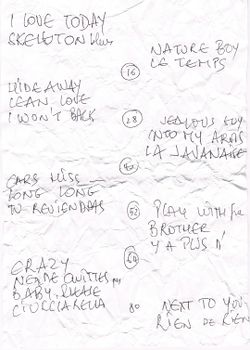 I LOVE TODAY
SKELETON
NATURE BOY
LE TEMPS
16
HIDEAWAY
LEAN LOVE
I WON'T BACK
28
JEALOUS GUY
INTO MY ARMS
LA JAVANAISE
40
CARS HISS
LONG LONG
TU REVIENDRAS
52
PLAY WITH
BROTHER
Y A PLUS D'
64
CRAZY
BABY, PLEASE
CIUCCIARELLA
80
NEXT TO YOU
RIEN DE RIEN